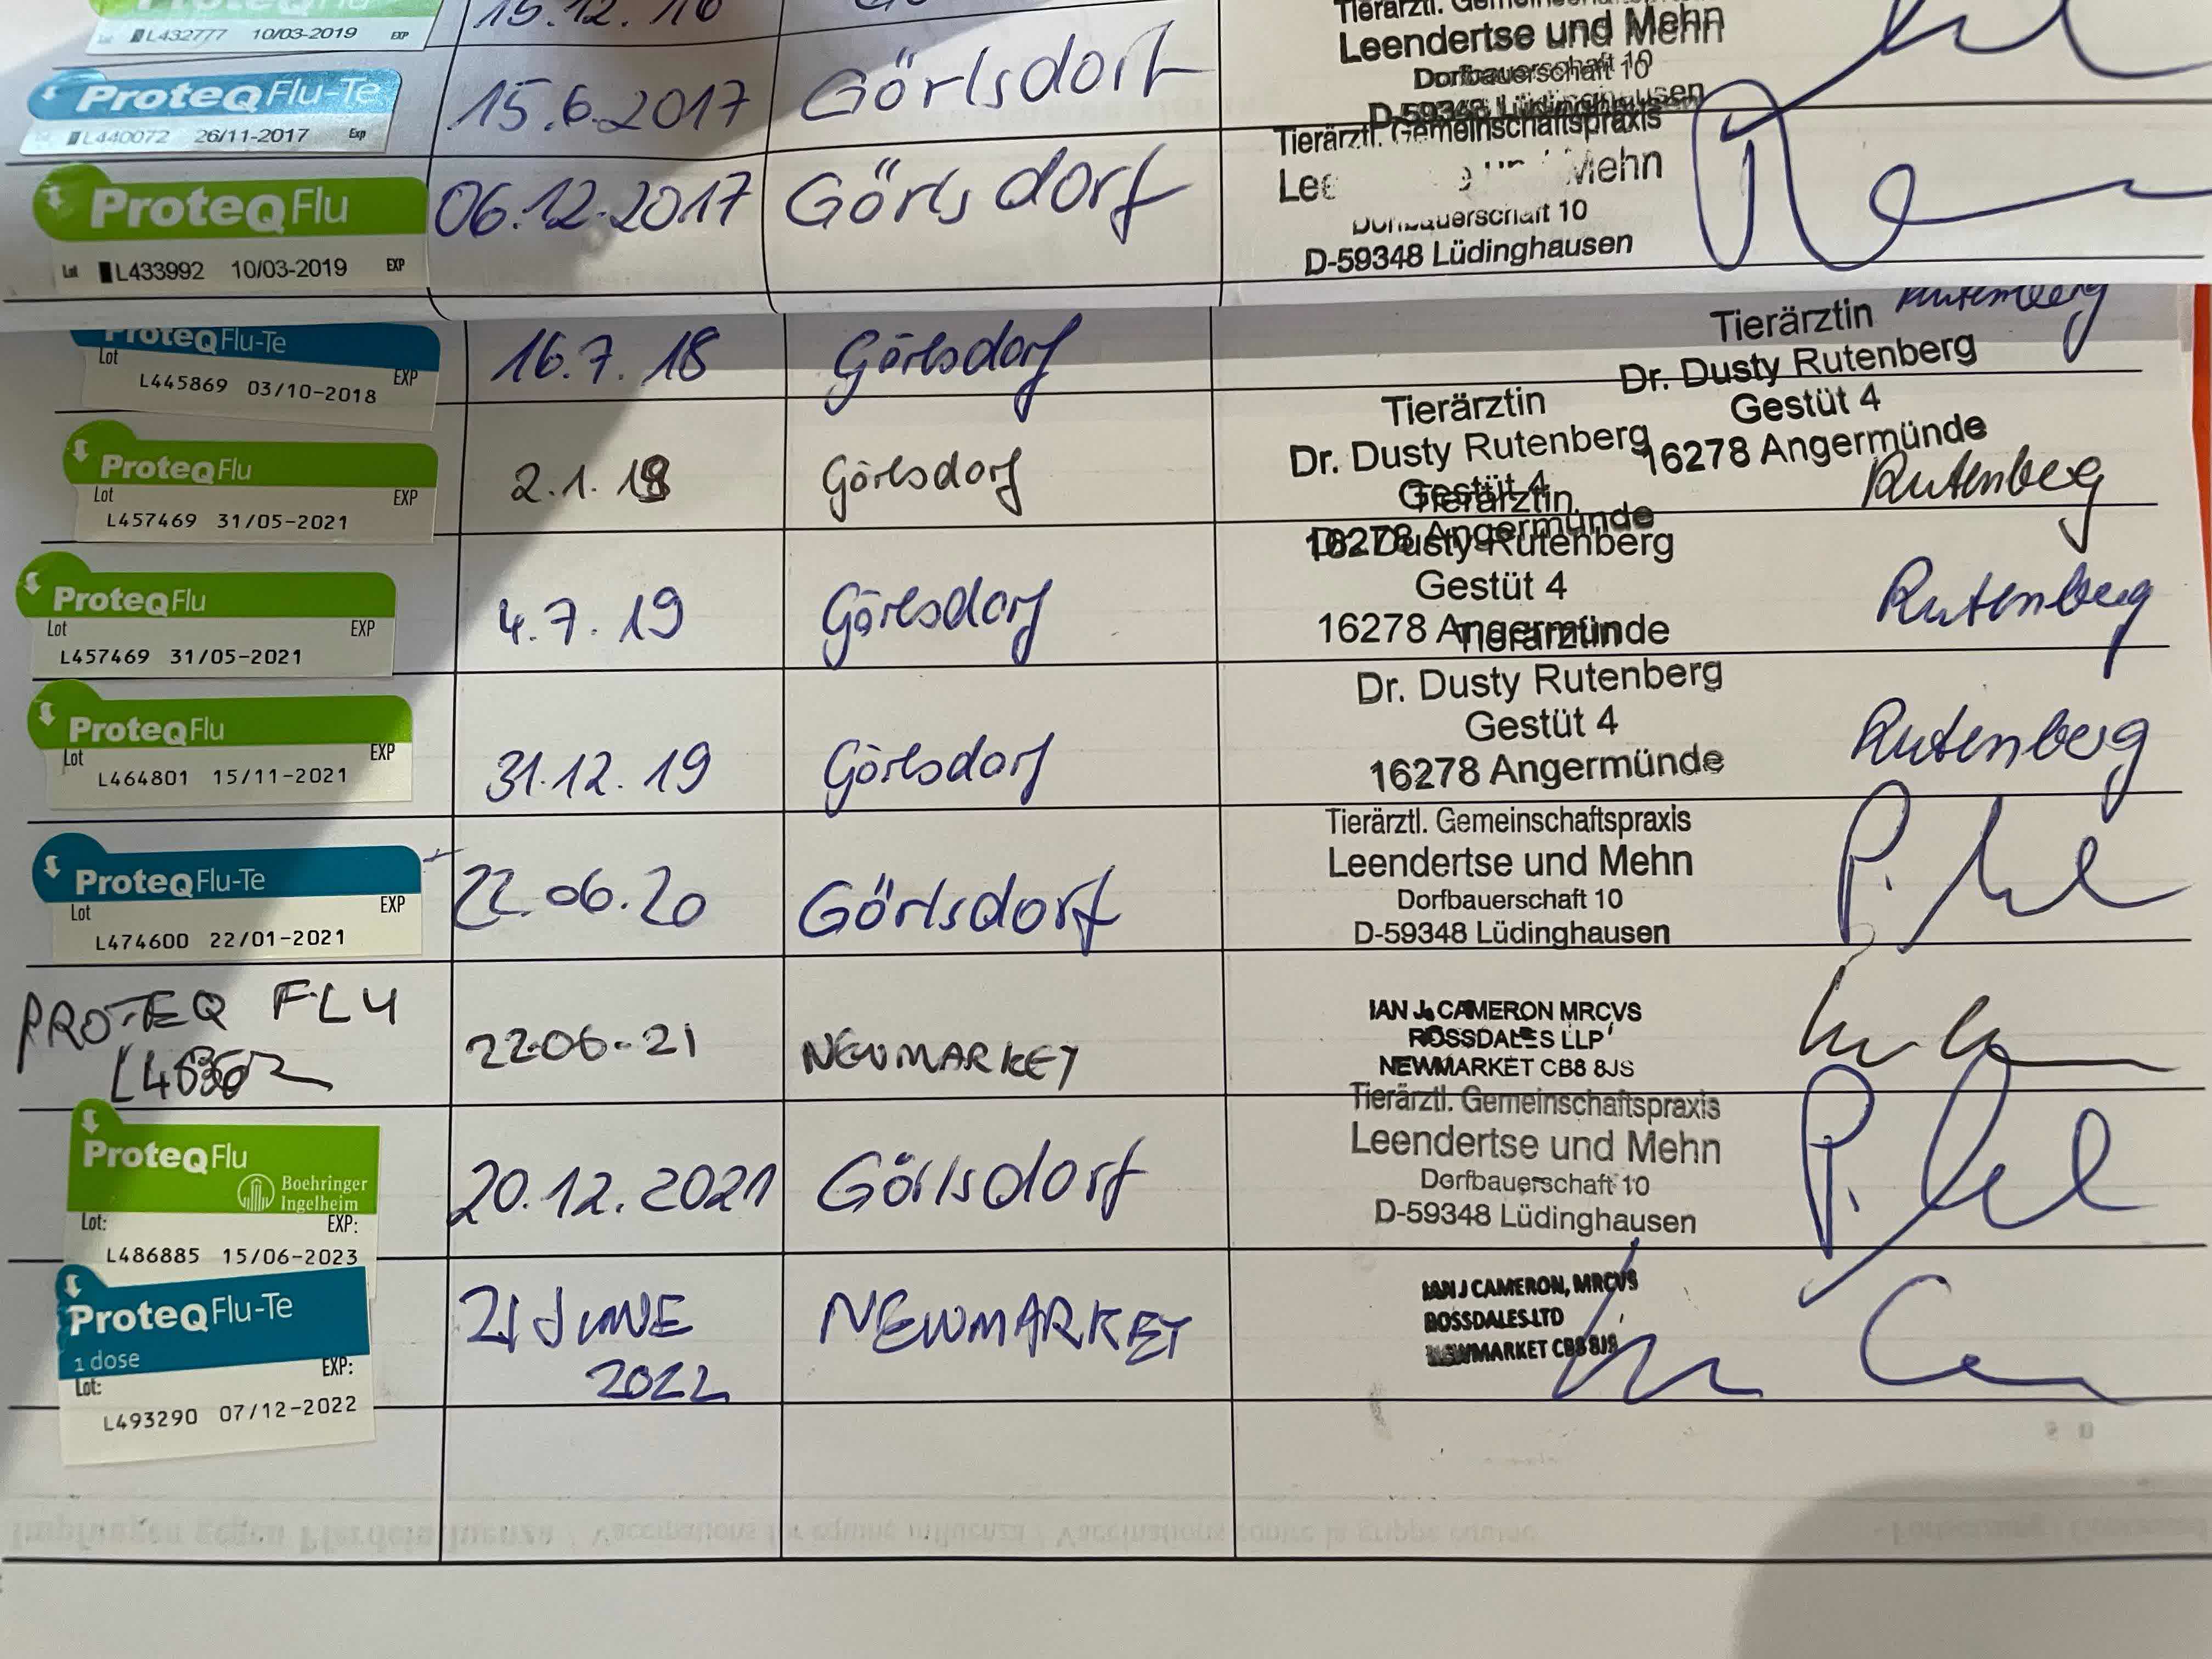 L432777 10/03-2019 EXP
15.12.16
Leendertse und Mehn
Dorfbauerschaft 10
D-59348 Lüdinghausen
ProteqFlu-Te
L440072 26/11-2017 Exp
15.6.2017
Görlsdorf
ProteqFlu
Lot L433992 10/03-2019 EXP
06.12.2017
Görlsdorf
Tierärztl. Gemeinschaftspraxis
Mehn
Dorfbauerschaft 10
D-59348 Lüdinghausen
ProteqFlu-Te
Lot EXP
L445869 03/10-2018
16.7.18
Görlsdorf
Tierärztin Rutenberg
Dr. Dusty Rutenberg
Gestüt 4
16278 Angermünde
ProteqFlu
Lot EXP
L457469 31/05-2021
2.1.
Görlsdorf
Tierärztin
Dr. Dusty Rutenberg
Gestüt 4
16278 Angermünde
Rutenberg
ProteqFlu
Lot EXP
L457469 31/05-2021
4.7.19
Görlsdorf
Tierärztin
Dr. Dusty Rutenberg
Gestüt 4
16278 Angermünde
Rutenberg
ProteqFlu
Lot EXP
L464801 15/11-2021
31.12.19
Görlsdorf
Tierärztin
Dr. Dusty Rutenberg
Gestüt 4
16278 Angermünde
Rutenberg
ProteqFlu-Te
Lot EXP
L474600 22/01-2021
22.06.20
Görlsdorf
Tierärztl. Gemeinschaftspraxis
Leendertse und Mehn
Dorfbauerschaft 10
D-59348 Lüdinghausen
PROTEQ FLU
22-06-21
NEWMARKET
IAN J. CAMERON MRCVS
ROSSDALES LLP
NEWMARKET CB8 8JS
ProteqFlu
Boehringer
Ingelheim
Lot: EXP:
L486885 15/06-2023
20.12.2021
Görlsdorf
Tierärztl. Gemeinschaftspraxis
Leendertse und Mehn
Dorfbauerschaft 10
D-59348 Lüdinghausen
ProteqFlu-Te
1 dose
Lot: EXP:
L493290 07/12-2022
21 JUNE
2022
NEWMARKET
IAN J CAMERON, MRCVS
ROSSDALES LTD
NEWMARKET CB8 8JS